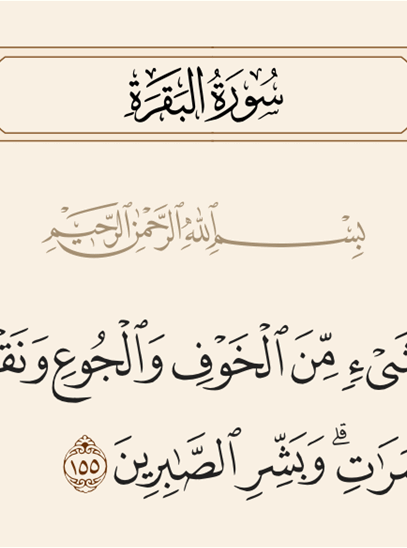 سُورَةُ البَقَرَةِ
بِسْمِ ٱللَّهِ ٱلرَّحْمَٰنِ ٱلرَّحِيمِ
مِّنَ ٱلْخَوْفِ وَٱلْجُوعِ
وَبَشِّرِ ٱلصَّٰبِرِينَ ١٥٥